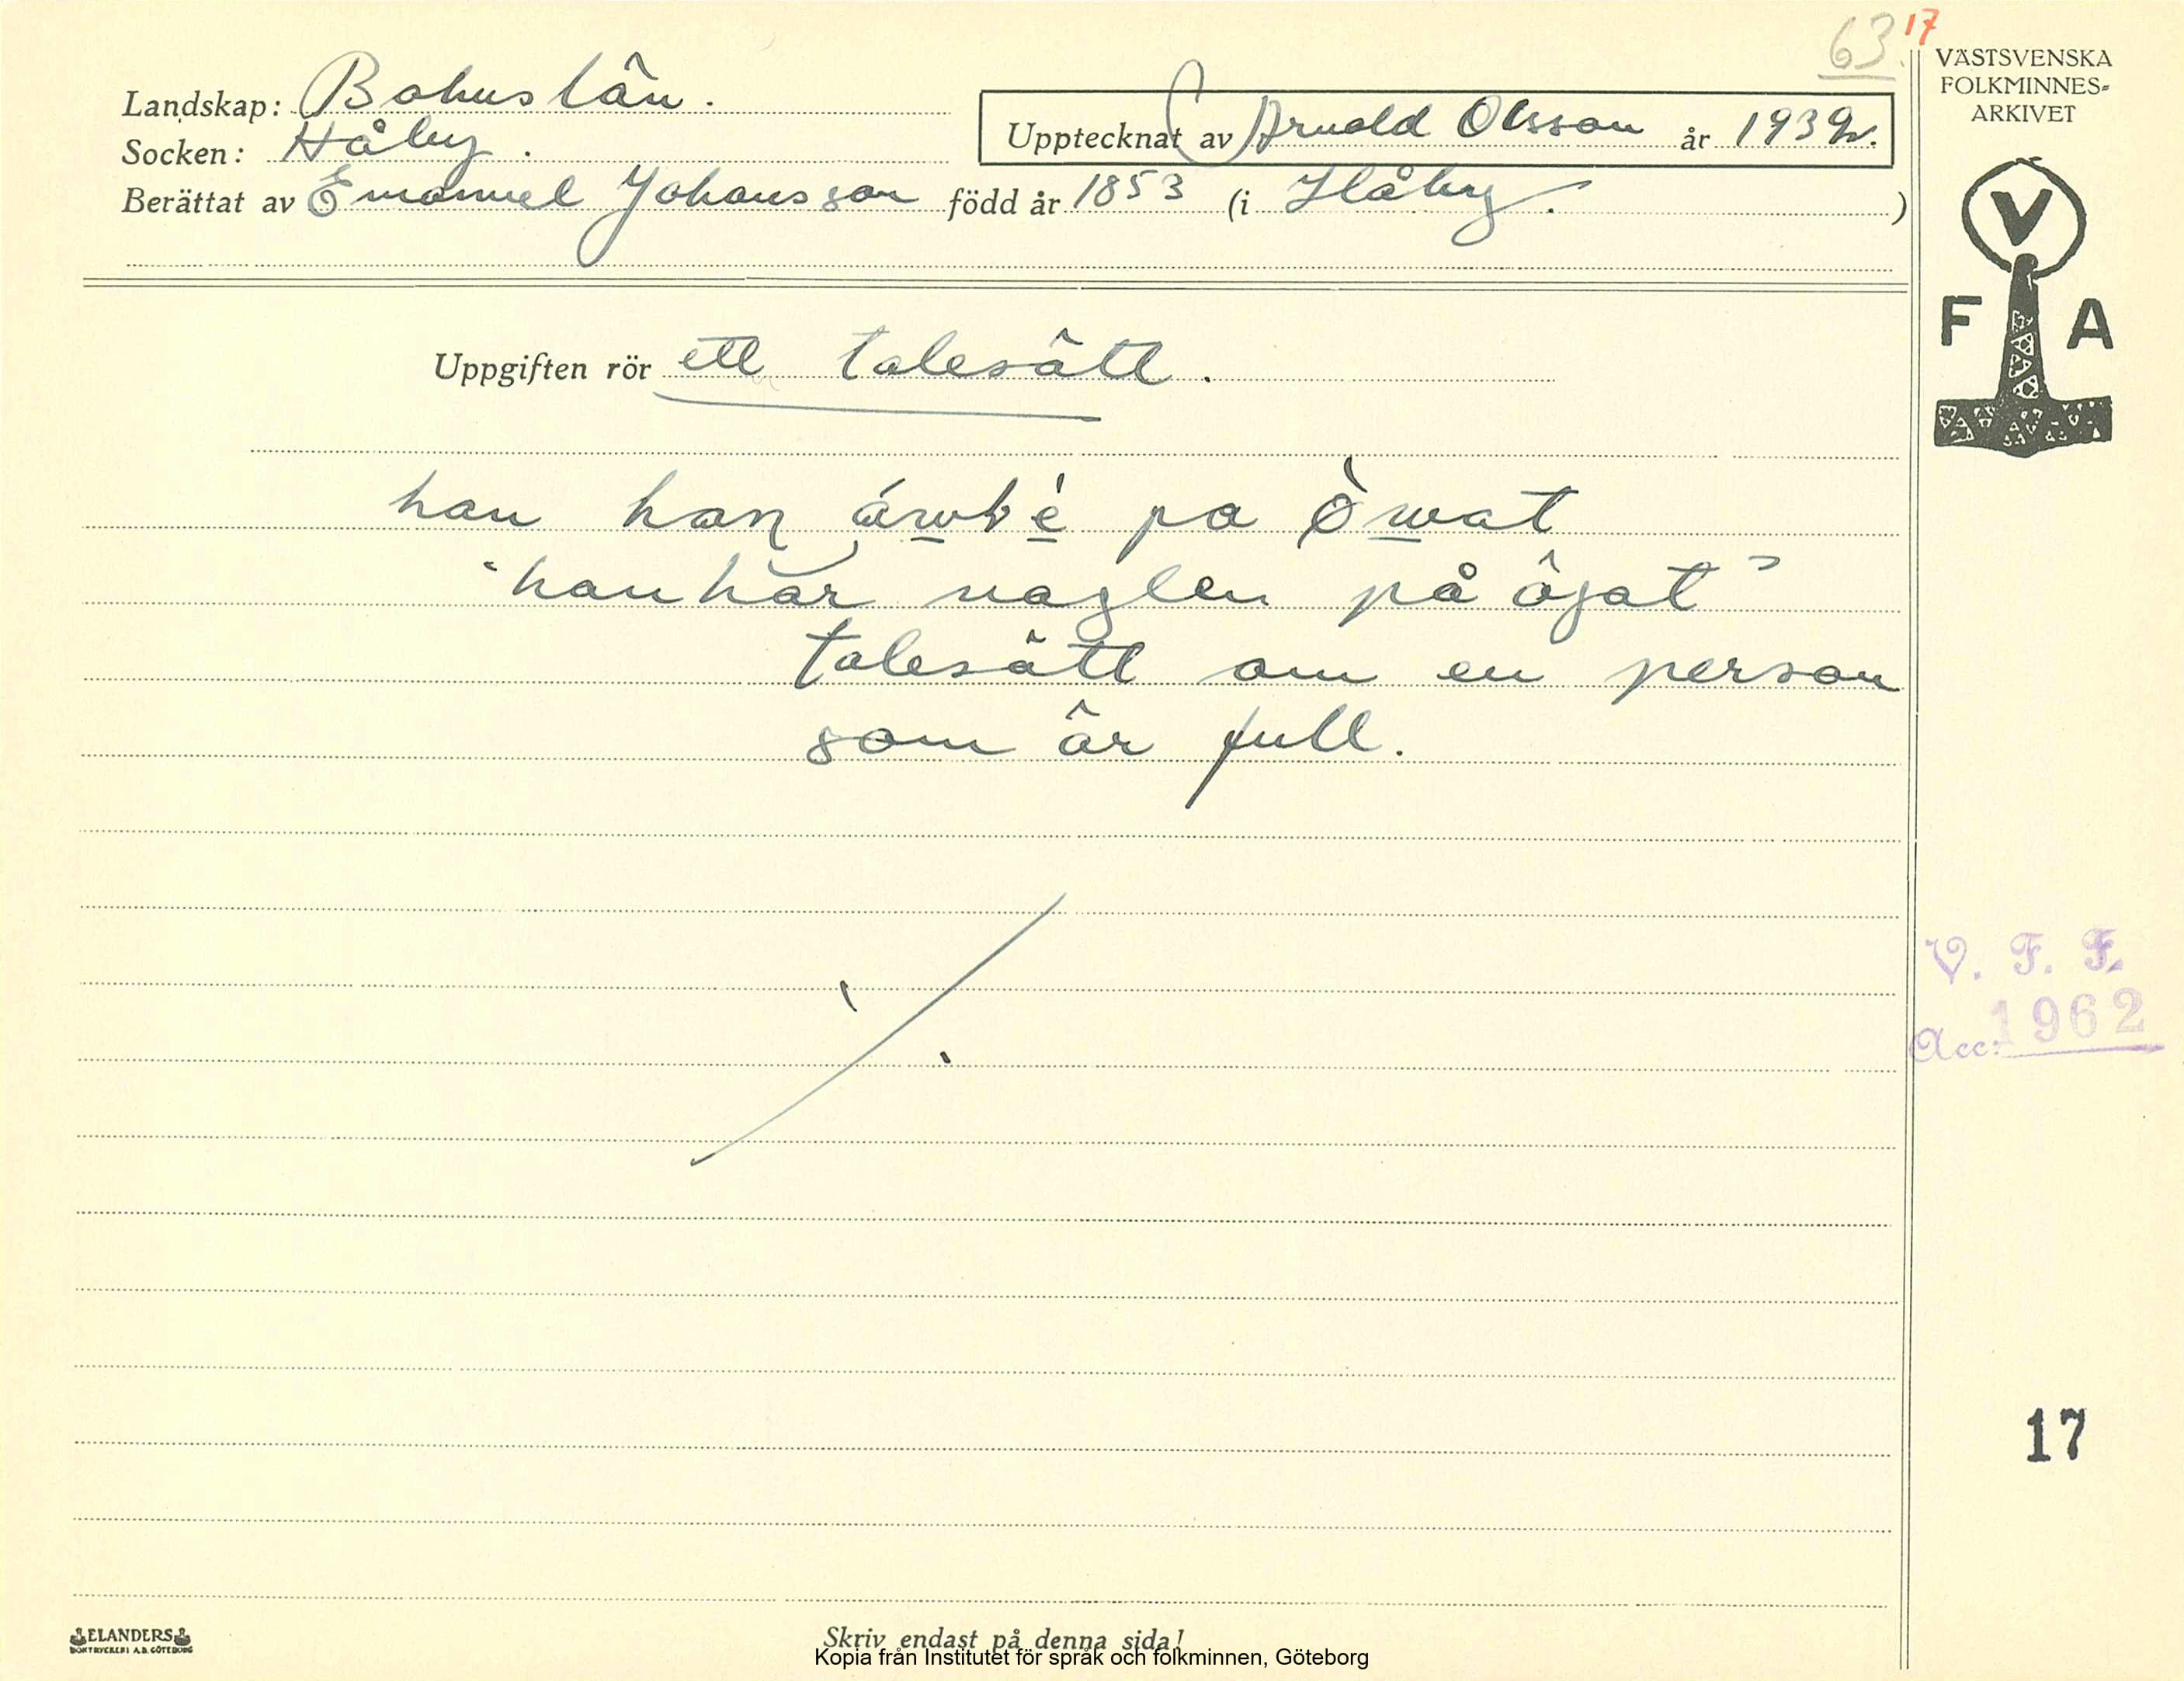 63. 17
VÄSTSVENSKA
FOLKMINNES-
ARKIVET
Landskap: Bohuslän.
Socken: Håby.
Upptecknat av Arnold Olsson år 1932.
Berättat av Emanuel Johansson född år 1853 (i Håby. )
V
F A
Uppgiften rör ett talesätt.
han han på
"han har naglen på ögat"
talesätt om en person
som är full.
V. F. F.
Acc: 1962
17
ELANDERS
BOKTRYCKERI A.B. GÖTEBORG
Skriv endast på denna sida!
Kopia från Institutet för språk och folkminnen, Göteborg